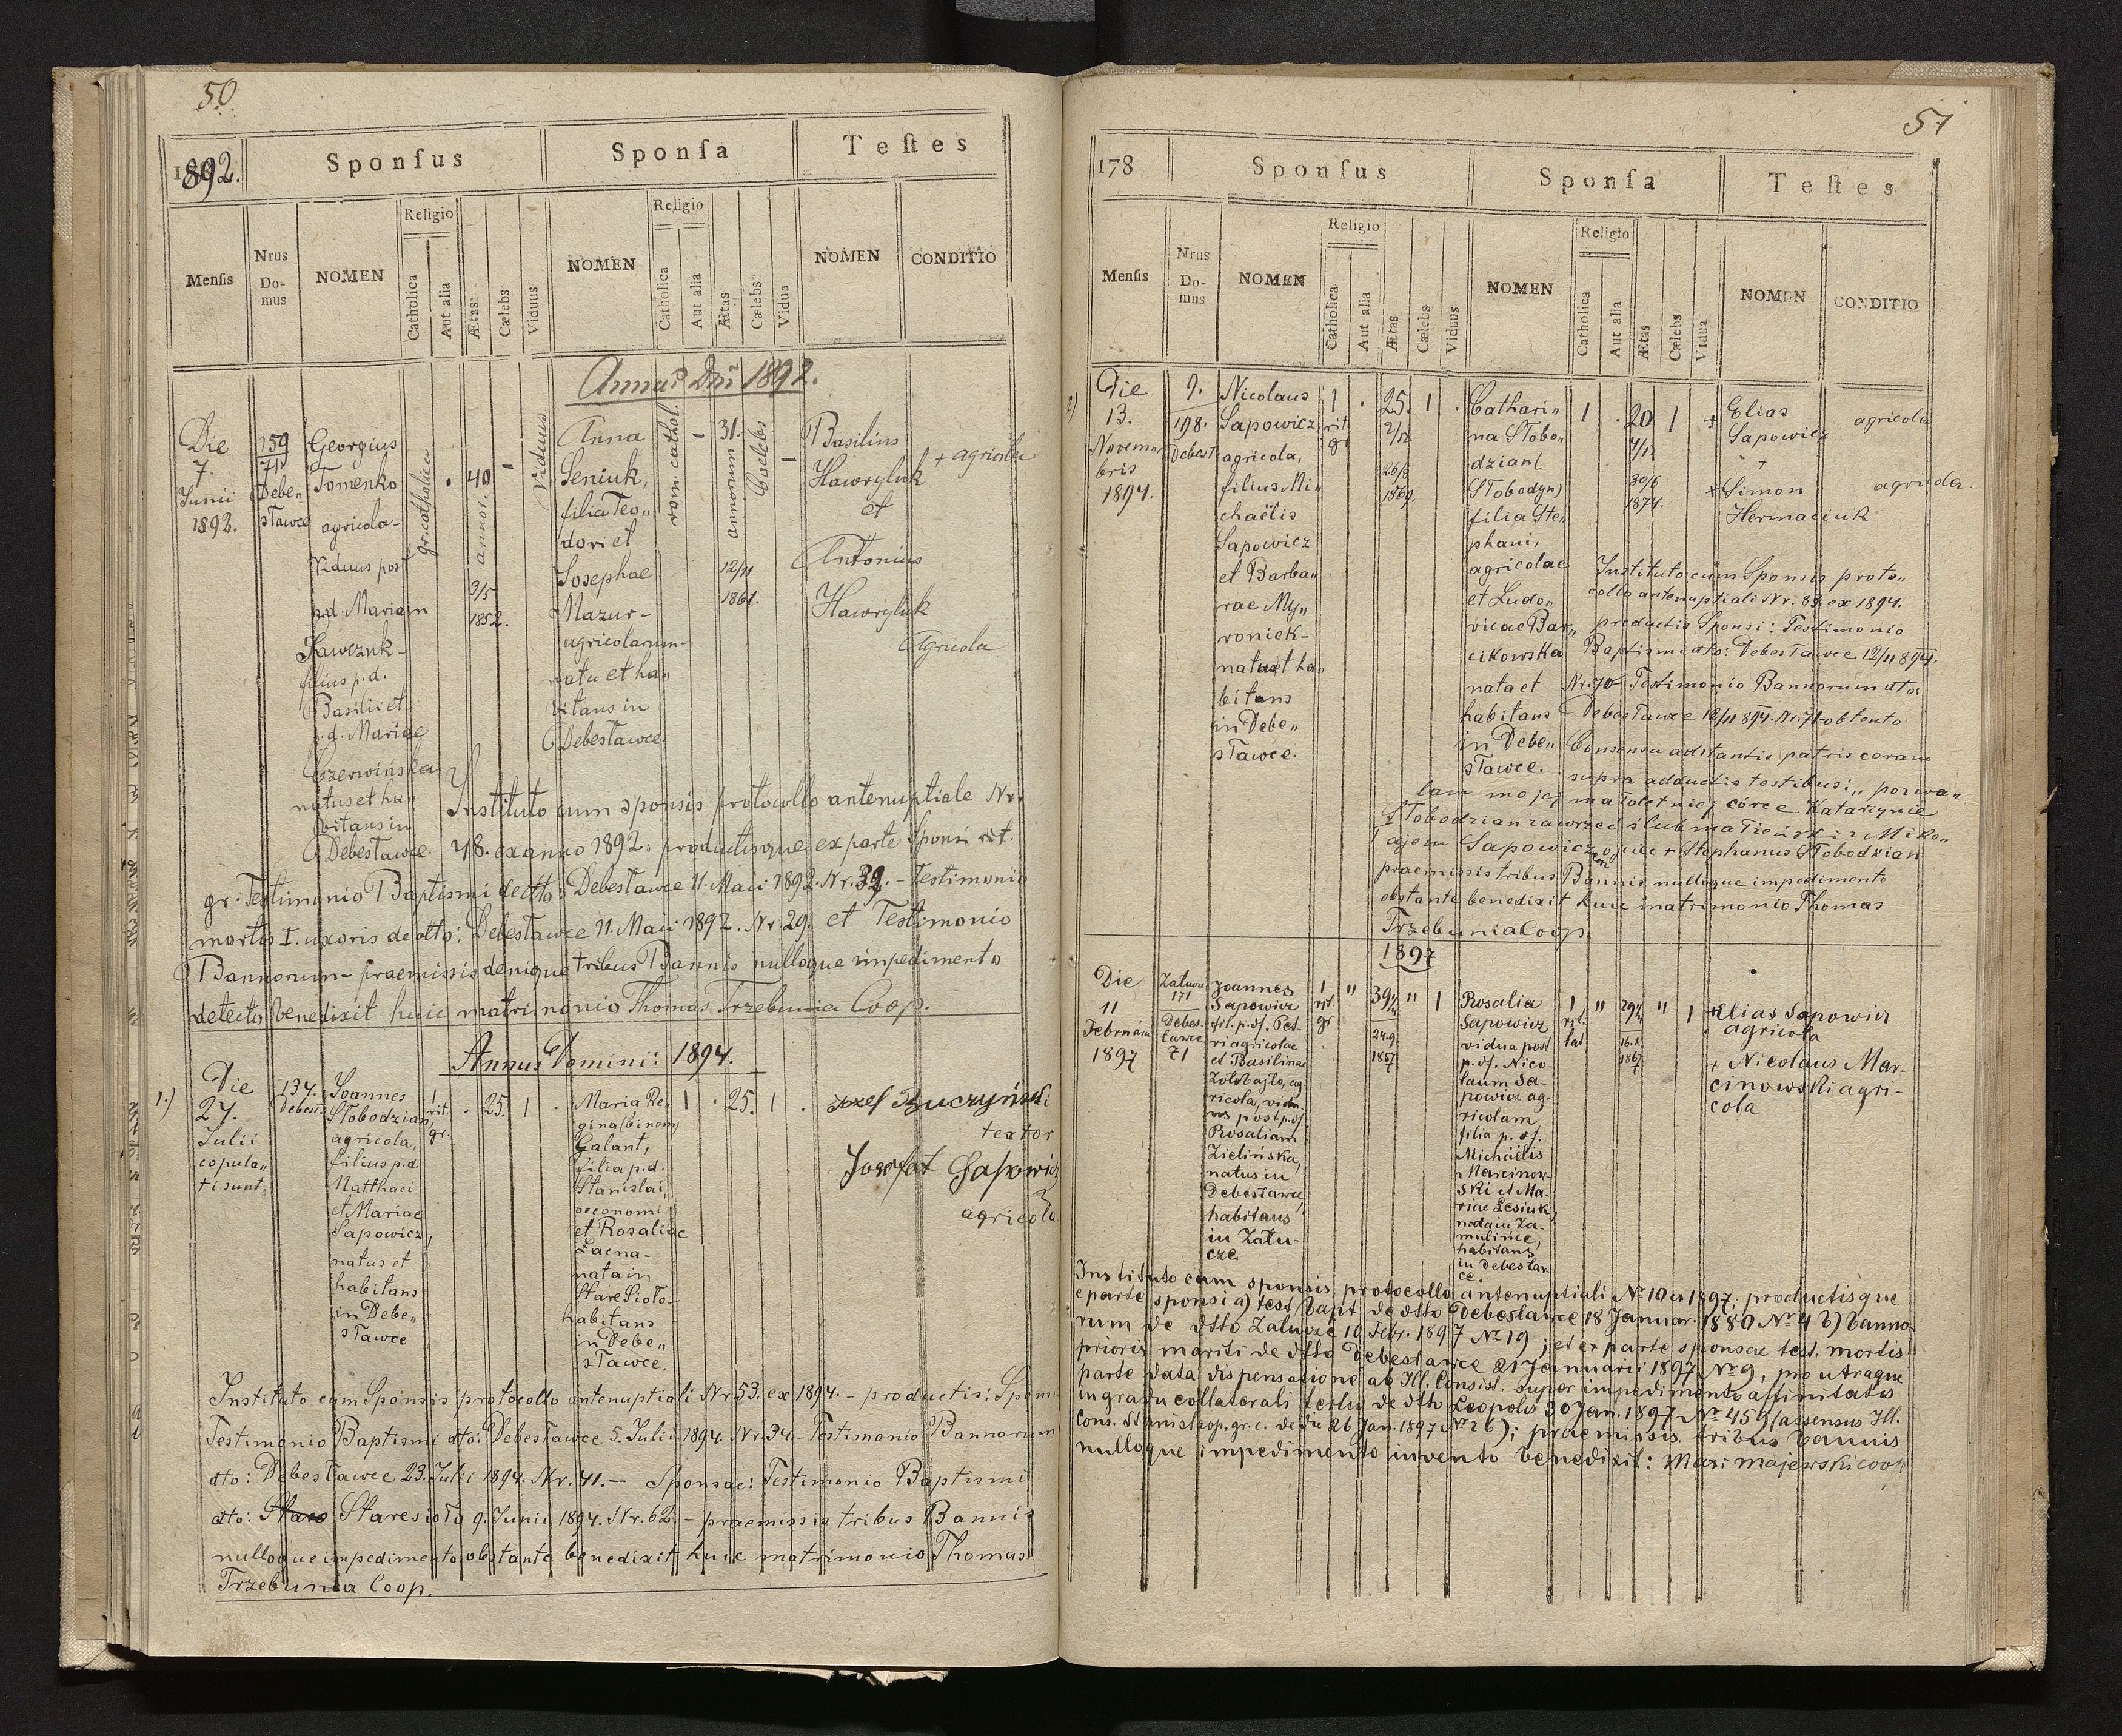 50
1892.
Sponſus
Sponſa
Teſtes
Menſis
Nrus
Do-
mus
NOMEN
Religio
Catholica
Aut alia
Ætas
Cælebs
Viduus
NOMEN
Religio
Catholica
Aut alia
Ætas
Cælebs
Vidua
NOMEN
CONDITIO
Annus Dni 1892.
Die
7.
Junii
1892.
159
71
Debe-
sławce
Georgius
Tomenko
agricola-
Viduus post
p.d. Mariam
Sawczuk-
filius p.d.
Basilii et
p.d. Mariae
Czerwińska
natus et ha„
bitans in
Debesławce.
gr. catholica
40
annor.
3/5
1852.
Viduus
Anna
Seniuk,
filia Teo„
dori et
Josephae
Mazur-
agricolarum-
nata et ha„
bitans in
Debesławce.
rom. cathol.
31.
annorum
12/11
1861.
Coelebs
Basilius
Hawryluk
et
Antonius
Hawryluk
+ agricolae
Agricola
Instituto cum sponsis protocollo antenuptiale Nr.
48. ex anno 1892. productisque ex parte Sponsi rit.
gr: Testimonio Baptismi de dto: Debesławce 11. Maii 1892. Nr. 32. - Testimonio
mortis I. uxoris de dto: Debesławce 11. Maii 1892. Nr 29. et Testimonio
Bannorum - praemissis denique tribus Bannis nulloque impedimento
detecto benedixit huic matrimonio Thomas Trzebunia Coop.
Annus Domini: 1894.
1.)
Die
27.
Julii
copula„
ti sunt.
134.
Debest.
Joannes
Słobodzian,
agricola,
filius p.d.
Matthaei
et Mariae
Sapowicz,
natus et
habitans
in Debe„
sławce
1
rit.
gr.
25.
1
Maria Re„
gina (binom)
Galant,
filia p.d.
Stanislai,
oeconomi
et Rosaliae
Łacna-
nata in
Stare Sioło-
habitans
in Debe„
sławce.
1
25.
1
Józef Buczyński
textor
Jozefat Sapowicz
agricola
Instituto cum Sponsis protocollo antenuptiali Nr. 53. ex 1894. - productis: Sponsi
Testimonio Baptismi dto: Debesławce 5. Julii 1894. Nr. 34. - Testimonio Bannorum
dto: Debesławce 23. Julii 1894. Nr. 41. - Sponsae: Testimonio Baptismi
dto: Stare Staresioło 9. Junii 1894. Nr. 62. - praemissis tribus Bannis
nulloque impedimento obstante benedixit huic matrimonio Thomas
Trzebunia Coop.
51
178
Sponſus
Sponſa
Teſtes
Menſis
Nrus
Do-
mus
NOMEN
Religio
Catholica
Aut alia
Ætas
Cælebs
Viduus
NOMEN
Religio
Catholica
Aut alia
Ætas
Cælebs
Vidua
NOMEN
CONDITIO
2)
Die
13.
Novem„
bris
1894.
9.
198.
Debest.
Nicolaus
Sapowicz
agricola,
filius Mi„
chaëlis
Sapowicz
et Barba„
rae My„
roniek-
natus et ha„
bitans
in Debe„
sławce.
1
rit.
gr
25.
2/12
26/8
1869.
1
Cathari„
na Słobo„
dzian(
Słobodyn)
filia Ste„
phani,
agricolae
et Ludo„
vicae Bar„
cikowska
nata et
habitans
in Debe„
sławce.
1
20
4/12
30/6
1874.
1
+ Elias
Sapowicz
agricola
+
+ Simon
Hermaciuk
agricola.
Instituto cum Sponsis proto„
collo antenuptiali Nr. 83. ex 1894.
productis Sponsi: Testimonio
Baptismi dto: Debesławce 12/11 894.
Nr. 70 Testimonio Bannorum dto:
Debesławce 12/11 894. Nr. 71-obtento
Consensu adstantis patris coram
supra adductis testibus: „pozwa„
lam mojej małoletniej córce Katarzynie
Słobodzian zawrzeć ślub małżeński z Miko„
łajem Sapowiczem ojciec + Stephanus Słobodzian
praemissis tribus Bannis nulloque impedimento
obstante benedixit huic matrimonio Thomas
Trzebunia Coop.
1897
Die
11
Februarii
1897
Załucze
171
Debes-
ławce
71
Joannes
Sapowicz
fil. p. df. Pet-
ri agricolae
et Basilinae
Zołobajło, ag
ricola, vidu-
us post p. df.
Rosaliam
Zielińska,
natus in
Debesławce,
habitans
in Zału-
cze.
1
rit.
gr
"
39 4/12
24.9.
1857
"
1
Rosalia
Sapowicz
vidua post
p. df. Nico-
laum Sa-
powicz ag-
ricolam
filia p. df.
Michaelis
Marcinow-
ski et Ma-
riae Lesiuk,
nata in Za-
mulińce,
habitans
in Debesław-
ce.
1
rit.
lat
"
29 4/12
16.8.
1867
"
1
+ Elias Sapowicz
agricola
+ Nicolaus Mar-
cinowski agri-
cola
Instituto cum sponsis protocollo antenuptiali No 10 ex 1897; productisque
e parte sponsi a) test. bapt. de dtto Debesławce 18 Januar. 1880 No 4 b) banno-
rum de dtto Załucze 10 Febr. 1897 No 19; et ex parte sponsae test. mortis
prioris mariti de dtto Debesławce 21 Januarii 1897 No 9, pro utraque
parte data dispensatione ab Ill. Consist. super impedimento affinitatis
in gradu collaterali tertu de dtto Leopolis 30 Jan. 1897 No 459 (assensus Ill.
Cons. Stanislaop. gr. c. de die 26 Jan. 1897 No 26); praemissis tribus bannis
nulloque impedimento invento benedixit: Max: Majewski coop